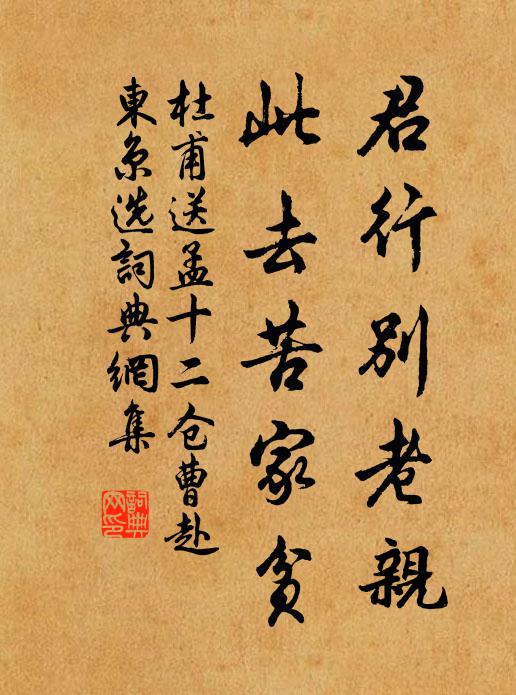 君行别老親
此去苦家貧
杜甫送孟十二仓曹赴
東京选詞典網集
詞典網印